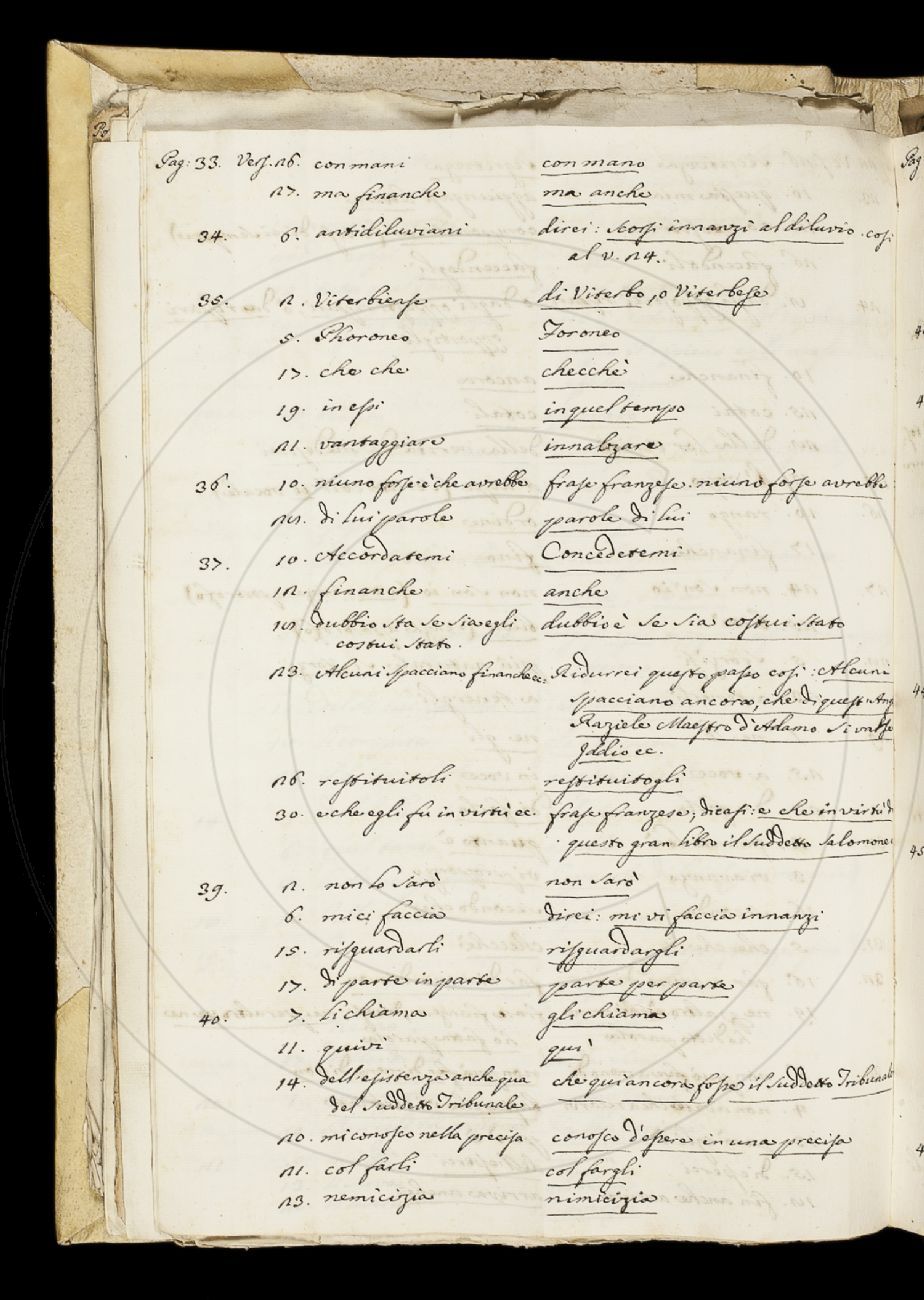 Pag: 33. Vers. 26. con mani con mano
27. ma financhè ma anche
34. 6. antidiluviani direi: scorsi innanzi al diluvio. così
al v. 24.
35. 2. Viterbiense di Viterbo, o Viterbese
5. Phoroneo Foroneo
17. che che checchè
19. in essi in quel tempo
21. vantaggiare innalzare
36. 10. niuno forse è che avrebbe frase franzese. niuno forse avrebbe
22. di lui parole parole di lui
37. 10. Accordatemi Concedetemi
12. finanche anche
dubbio sta se sia egli dubbio è se sia costui stato
costui stato.
23. Alcuni spacciano finanche ec: Ridurrei questo passo così: Alcuni
spacciano ancora, che di quest' Ang
Raziele Maestro d'Adamo si valse
Iddio ec.
26. restituitoli restituitogli
30. e che egli fu in virtù ec. frase franzese; dicasi: e che in virtù d
questo gran libro il suddetto Salomone
39. 2. non lo sarò non sarò
6. mi ci faccia direi: mi vi faccia innanzi
15. risguardarli risguardargli
17. di parte in parte parte per parte
40. 7. li chiama gli chiama
11. quivi quì
14. dell'esistenza anche qua che quì ancora fosse il suddetto Tribunale
del suddetto Tribunale
20. mi conosco nella precisa conosco d'essere in una precisa
21. col farli col fargli
23. nemicizia nimicizia
Pag
4
4
44
45
4